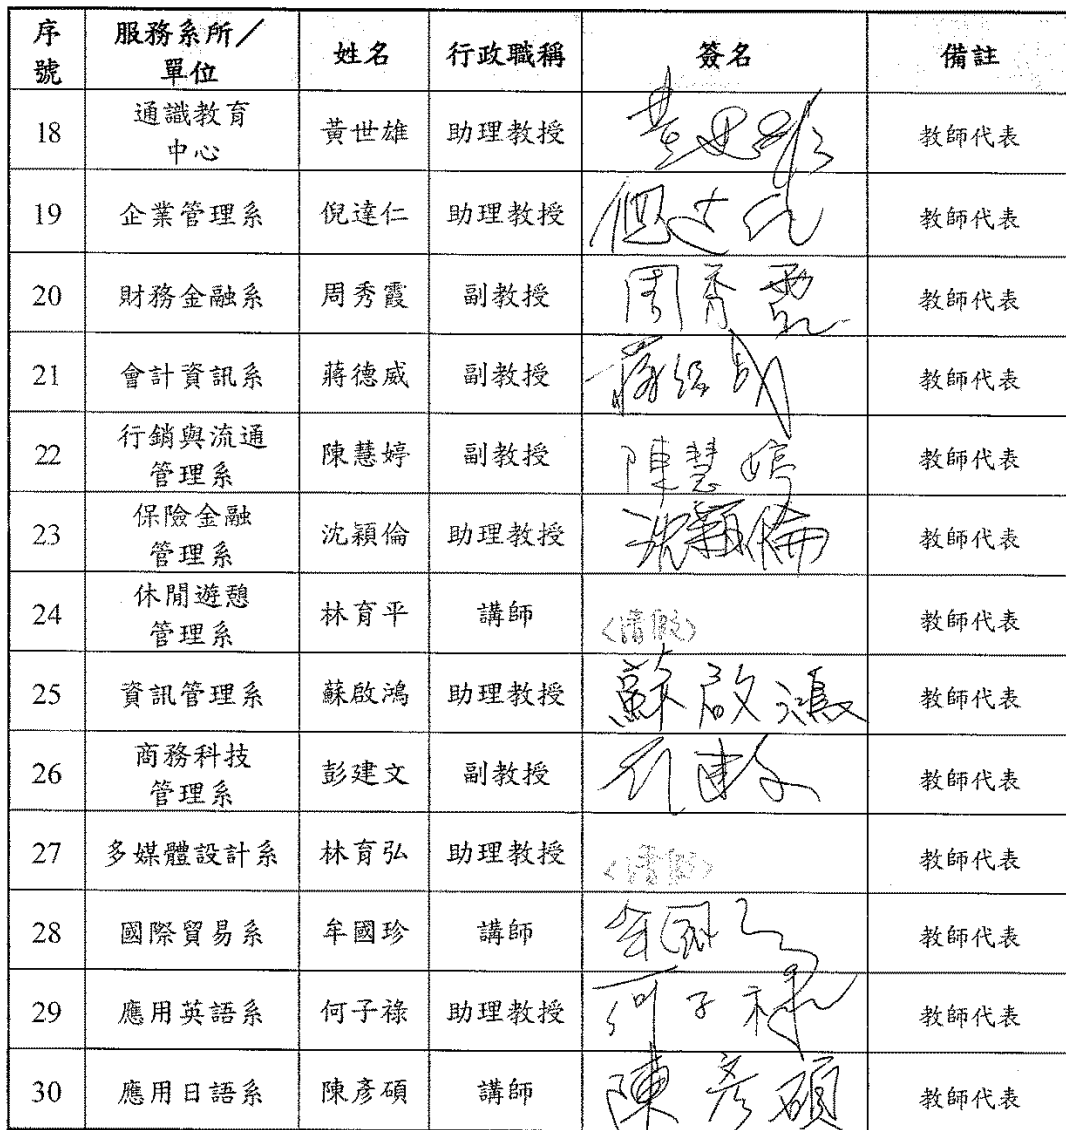 序號 服務系所／單位 姓名 行政職稱 簽名 備註
18 通識教育中心 黃世雄 助理教授 黃世雄 教師代表
19 企業管理系 倪達仁 助理教授 倪達仁 教師代表
20 財務金融系 周秀霞 副教授 周秀霞 教師代表
21 會計資訊系 蔣德威 副教授 蔣德威 教師代表
22 行銷與流通管理系 陳慧婷 副教授 陳慧婷 教師代表
23 保險金融管理系 沈穎倫 助理教授 沈穎倫 教師代表
24 休閒遊憩管理系 林育平 講師 <請假> 教師代表
25 資訊管理系 蘇啟鴻 助理教授 蘇啟鴻 教師代表
26 商務科技管理系 彭建文 副教授 彭建文 教師代表
27 多媒體設計系 林育弘 助理教授 <請假> 教師代表
28 國際貿易系 牟國珍 講師 牟國珍 教師代表
29 應用英語系 何子祿 助理教授 何子祿 教師代表
30 應用日語系 陳彥碩 講師 陳彥碩 教師代表